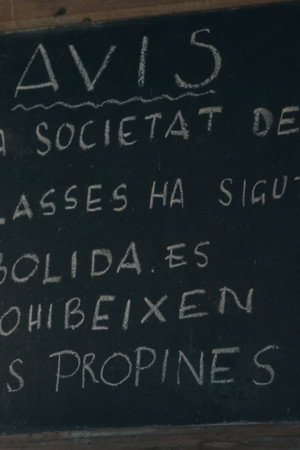 AVIS
A SOCIETAT DE
LASSES HA SIGUT
BOLIDA. ES
OHIBEIXEN
S PROPINES